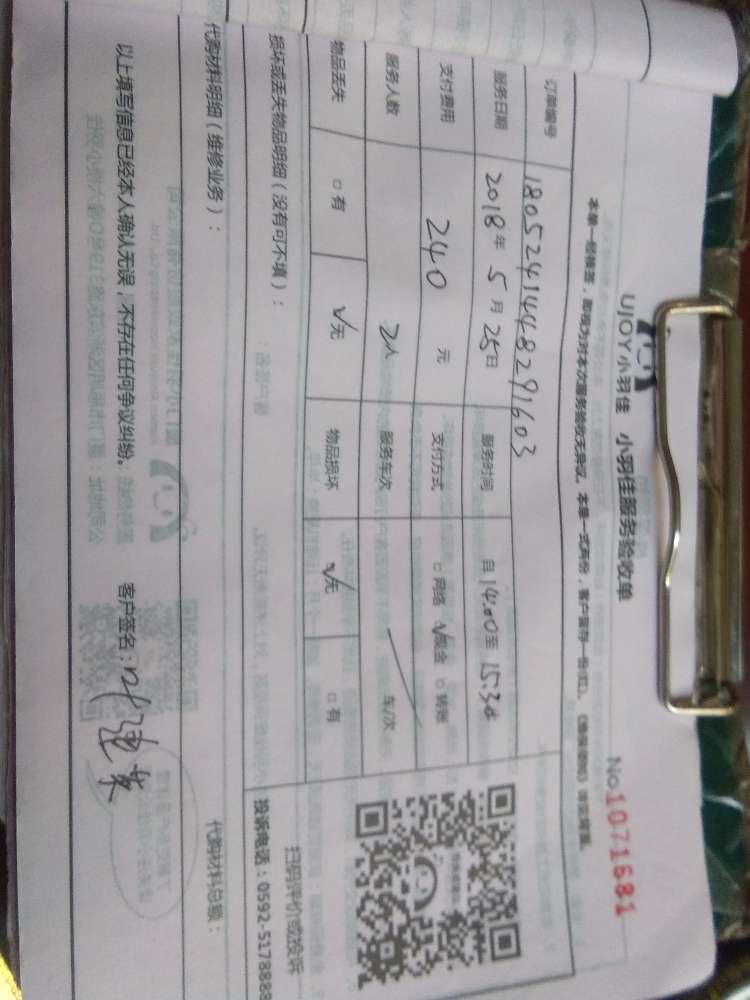 UJOY小羽佳 小羽佳服务验收单
No.1071681
本单一经签署，即视为对本次服务验收无异议。本单一式两份，客户留存一份(红)。
订单编号 1805241448291603
服务日期 2018年5月25日 服务时间 自14:00至15:30
支付费用 240元 支付方式 □网络 √现金 □转账
服务人数 2人 服务车次 车/次
物品丢失 □有 √无 物品损坏 √无 □有
损坏或丢失物品明细（没有可不填）：
扫码评价或投诉
投诉电话：0592-5178888
代购材料明细（维修业务）：
代购材料总额：
以上填写信息已经本人确认无误，不存在任何争议纠纷。 客户签名：